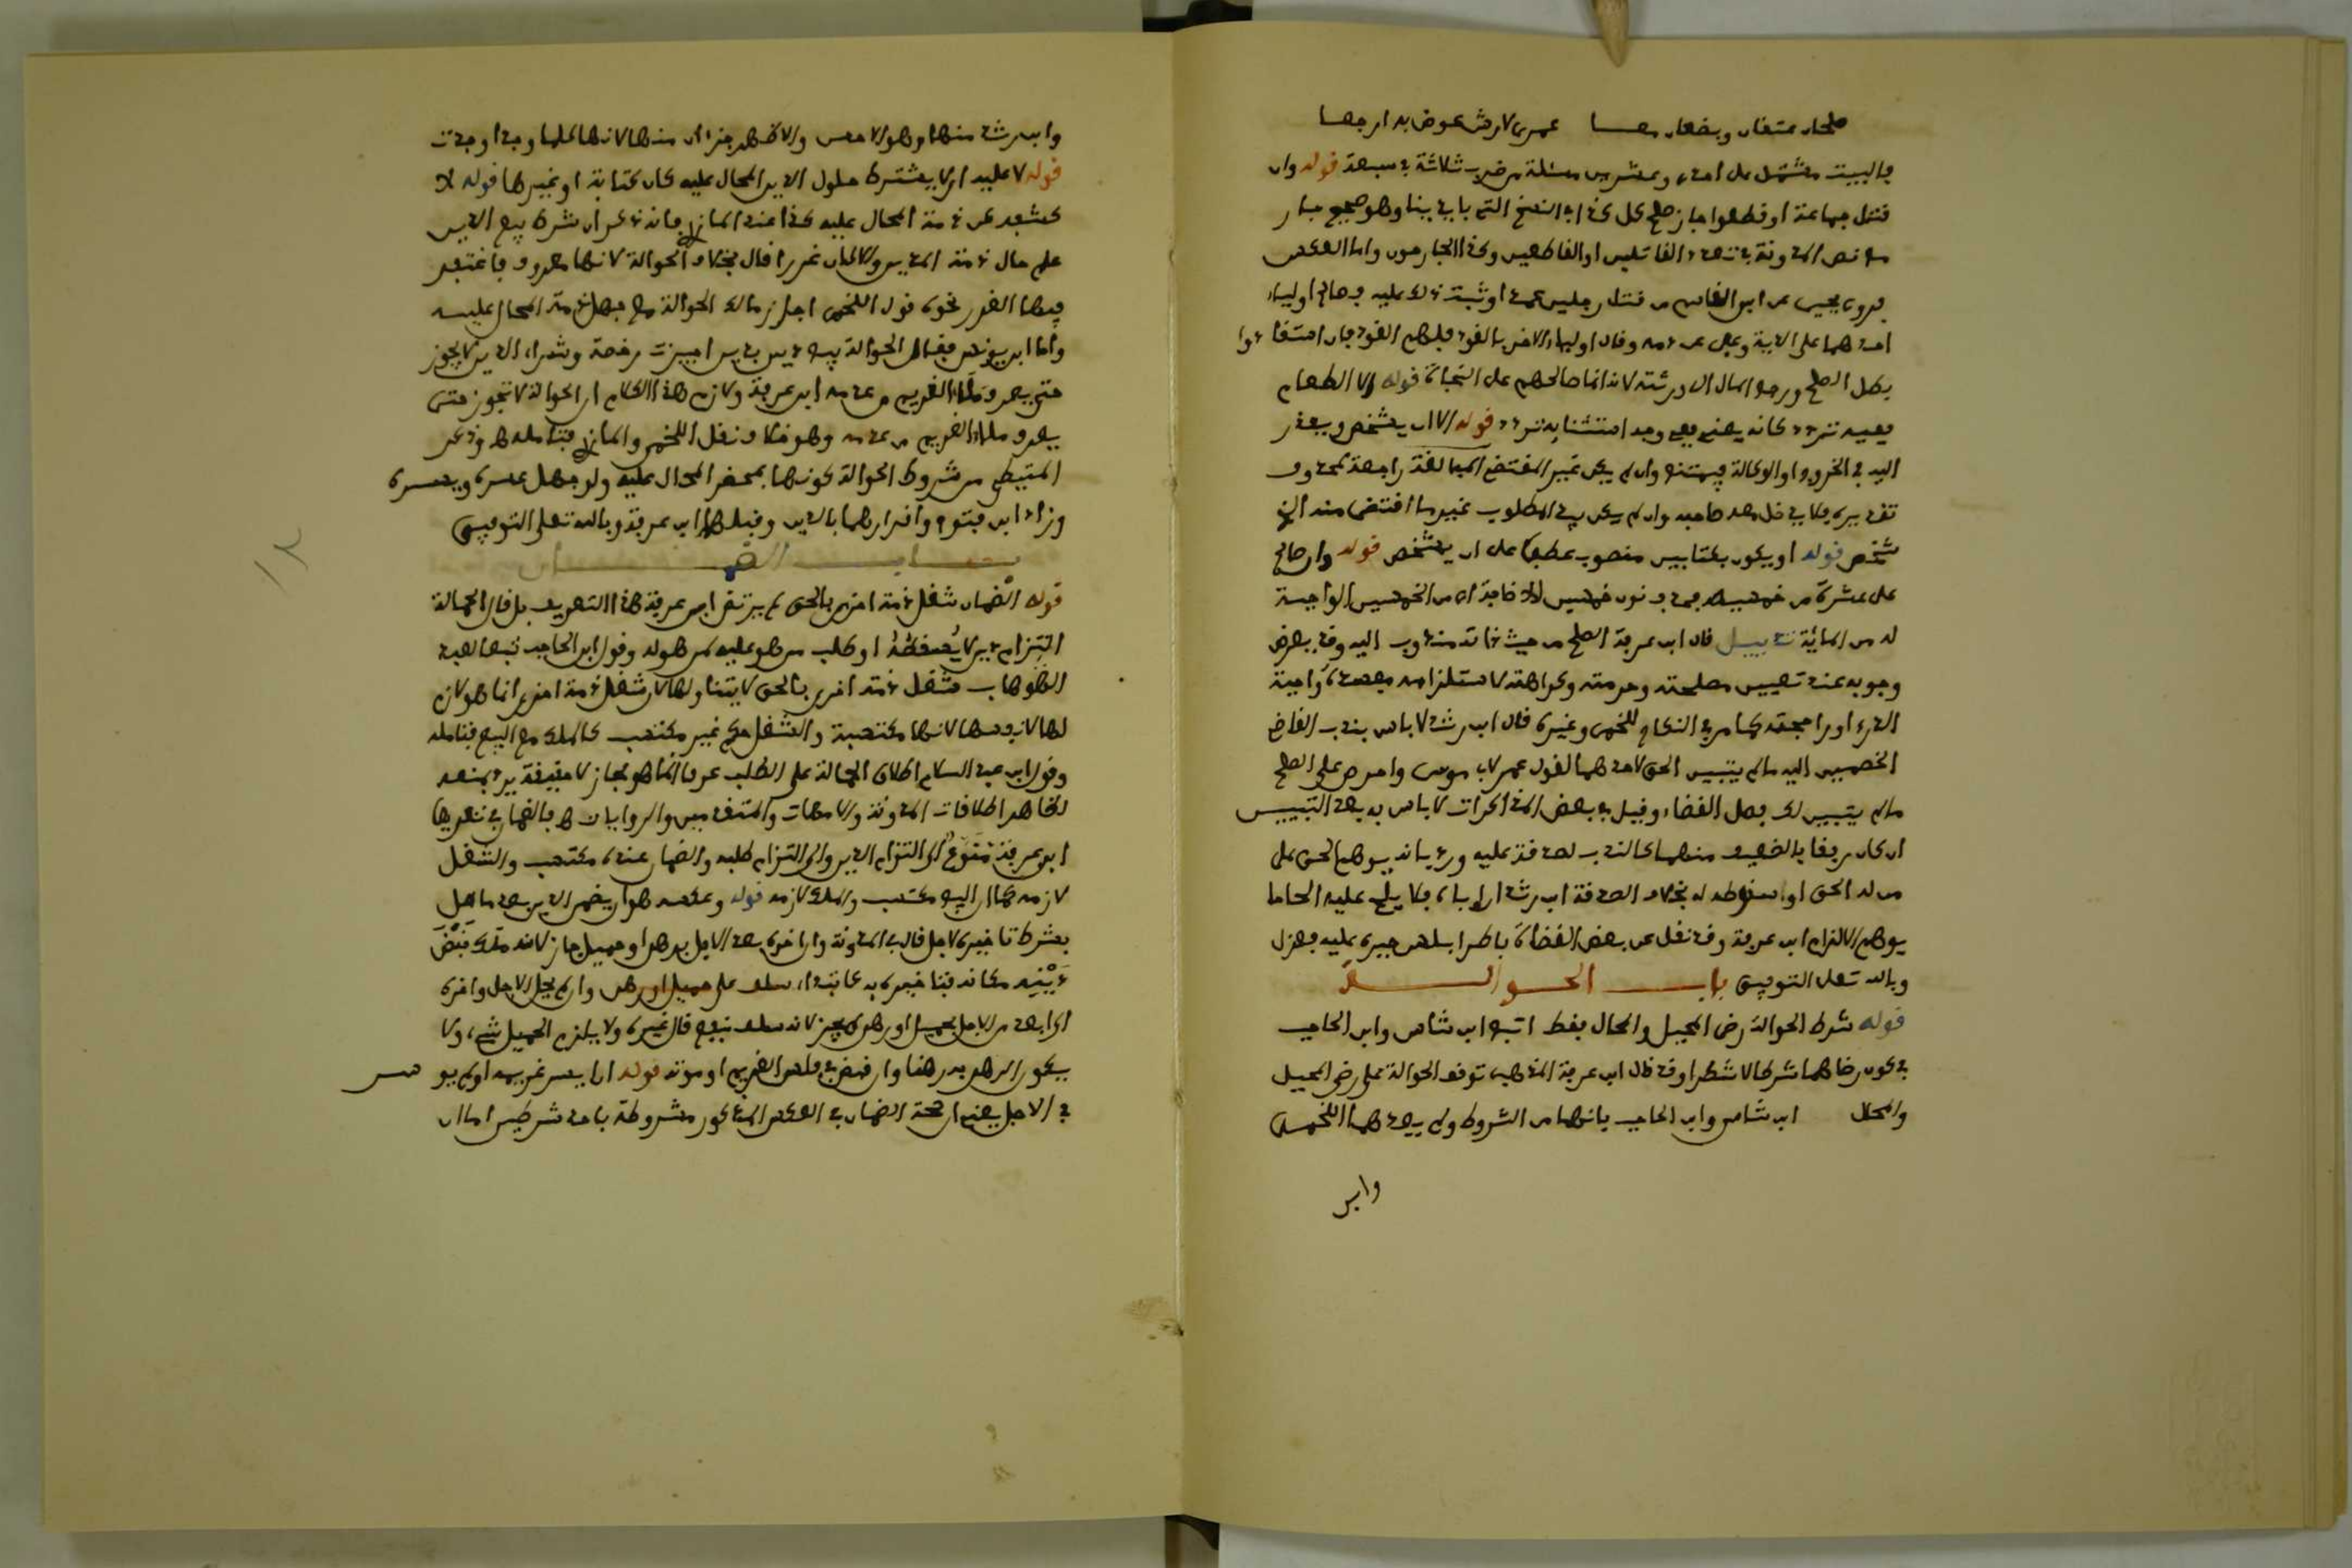 صلحان عتقان وبضعان معا عمرى لارش عوض به ارجعا
فالبيت مشتمل على احدى وعشرين مسئلة من ضرب ثلاثة في سبعة قوله وان
قتل جماعة او قطعوا جاز صلح كل كذا في النسخ التي بايدينا وهو صحيح جار
مع نص المدونة في تعدد القاتلين او القاطعين وكذا الجارحون واما العكس
فروى يحيى عن ابن القاسم من قتل رجلين عمدا وثبت ذلك عليه فصالح اولياء
احدهما على الدية وعفى عن دمه وقام اولياء الاخر بالقود فلهم القود فان استقادوا
بطل الصلح ورجع المال الى ورثته لانه انما صالحهم على النجاة قوله لا الطعام
ففيه تردد كانه يعني فوجه استثنايه تردد قوله الا ان يشخص ويعذر
اليه في الخروج او الوكالة فيمتنع وان لم يكن غير المقتضي المبالغة راجعة لمحذوف
تقديره فلا يدخل معه صاحبه وان لم يكن بيد المطلوب غير ما اقتضى منه الذي
شخص قوله او يكون بكتابين منصوب عطفا على ان يشخص قوله وان صالح
على عشرة من خمسينه فحذف نون خمسين للاضافة اي من الخمسين الواجبة
له من المائة تذييل قال ابن عرفة الصلح من حيث ذاته مندوب اليه وقد يعرض
وجوبه عند تعيين مصلحته وحرمته وكراهته لاستلزامه مفسدة واجبة
الدرء او راجحته كما مر في النكاح للخمي وغيره قال ابن رشد لا باس بندب القاضي
الخصمين اليه ما لم يتبين الحق لاحدهما لقول عمر لابي موسى واحرص على الصلح
ما لم يتبين لك فصل القضاء وقيل في بعض المذاكرات لا باس به بعد التبيين
ان كان لرفق بالضعيف منهما كالندب لصدقة عليه ورد بانه يوهم الحق على
من له الحق او اسقوطه له بخلاف الصدقة ابن رشد ان اباه فلا يلح عليه الحاحا
يوهم الالزام ابن عرفة وقد نقل عن بعض القضاة باطرابلس جبره عليه فعزل
وبالله تعالى التوفيق باب الحوالة
قوله شرط الحوالة رضى المحيل والمحال فقط اتبع ابن شاس وابن الحاجب
في كون رضاهما شرطا لا شطرا وقد قال ابن عرفة المذهب توقف الحوالة على رضى المحيل
والمحال ابن شاس وابن الحاجب بانهما من الشروط ولم يعدهما اللخمي
وابن
وابن رشد منها وهو الاحسن والاظهر جزءان منها لانها كلما وجدا وجدت
قوله لا عليه اي لا يشترط حلول الدين المحال عليه كان كتابة او غيرها قوله لا
كشفه عن ذمة المحال عليه كذا عند المازري فانه ذكر ان شرط بيع الدين
علم حال ذمة المدين والا كان غررا قال بخلاف الحوالة لانها معروف فاغتفر
فيها الغرر نحوه قول اللخمي اجاز مالك الحوالة مع جهل ذمة المحال عليه
واما ابن يونس فقال الحوالة بيع دين بدين اجيزت رخصة وشراء الدين لا يجوز
حتى يعرف ملاء الغريم من عدمه ابن عرفة ولازم هذا الكلام ان الحوالة لا تجوز حتى
يعرف ملاء الغريم من عدمه وهو خلاف نقل اللخمي والمازري فتامله وذكر
المتيطي من شروط الحوالة كونها بمحضر المحال عليه ولو جهل عسره ويسره
وزاد ابن فتوح واقرارهما بالدين وقبلها ابن عرفة وبالله تعالى التوفيق
باب الضمان
قوله الضمان شغل ذمة اخرى بالحق لم يرتض ابن عرفة هذا التعريف بل قال الحمالة
التزام دين لا يسقطه او طلب من هو عليه لمن هو له وقول ابن الحاجب تبعا لعبد
الوهاب شغل ذمة اخرى بالحق لا يتناولها لان شغل ذمة اخرى انما هو لازم
لها لا نفسها لانها مكتسبة والشغل حكم غير مكتسب كالملك مع البيع فتامله
وقول ابن عبد السلام اطلاق الحمالة على الطلب عرفا انما هو مجاز لا حقيقة يرد بمنعه
لظاهر اطلاقات المدونة والامهات والمتقدمين والروايات فالضمان في تعريف
ابن عرفة متنوع الى التزام الدين والى التزام طلبه والضمان عنده مكتسب والشغل
لازمه كما ان البيع مكتسب والملك لازمه قوله وعكسه هو ان يضمن الدين بعد ما حل
بشرط تاخيره لاجل قال في المدونة وان اخره بعد الاجل برهن او حميل جاز لانه ملك قبض
دينه مكانه فتاخيره به كابتداء سلف على حميل او رهن وان لم يحل الاجل واخره
الى ابعد من الاجل بحميل او رهن لم يجز لانه سلف بنفع قال غيره ولا يلزم الحميل شيء ولا
يكون الرهن به رهنا وان قبض في فلس الغريم او موته قوله ان ايسر غريمه او لم يوسر
في الاجل يعني ان صحة الضمان في العكس المذكور مشروطة باحد شرطين اما ان